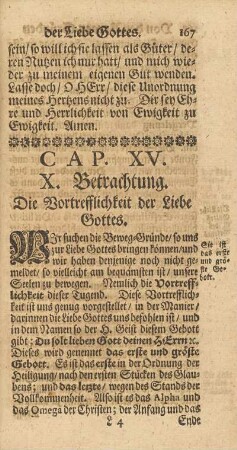 der Liebe Gottes. 167
sein/ so will ich sie lassen als Güter/ de-
ren Nutzen ich nur hatt/ und mich wie-
der zu meinem eigenen Gut wenden.
Lasse doch/ O HErr/ diese Unordnung
meines Hertzens nicht zu. Dir sey Eh-
re und Herrlichkeit von Ewigkeit zu
Ewigkeit. Amen.
CAP. XV.
X. Betrachtung.
Die Vortrefflichkeit der Liebe
Gottes.
WIr suchen die Beweg-Gründe/ so uns
zur Liebe Gottes bringen können/ und
wir haben denjenige noch nicht ge-
meldet/ so vielleicht am bequämsten ist/ unsere
Seelen zu bewegen. Nemlich die Vortreff-
lichkeit dieser Tugend. Diese Vortrefflich-
keit ist uns genug vorgestellet/ in der Manier/
darinnen die Liebe Gottes uns befohlen ist/ und
in dem Namen so der H. Geist diesem Gebott
gibt: Du solt lieben Gott deinen HErrn ꝛc.
Dieses wird genennet das erste und gröste
Gebott. Es ist das erste in der Ordnung der
Heiligung/ nach den ersten Stücken des Glau-
bens; und das letzte/ wegen des Stands der
Vollkommenheit. Also ist es das Alpha und
das Omega der Christen; der Anfang und das
L 4 Ende
Sie ist
das erste
und grö-
ste Ge-
bott.